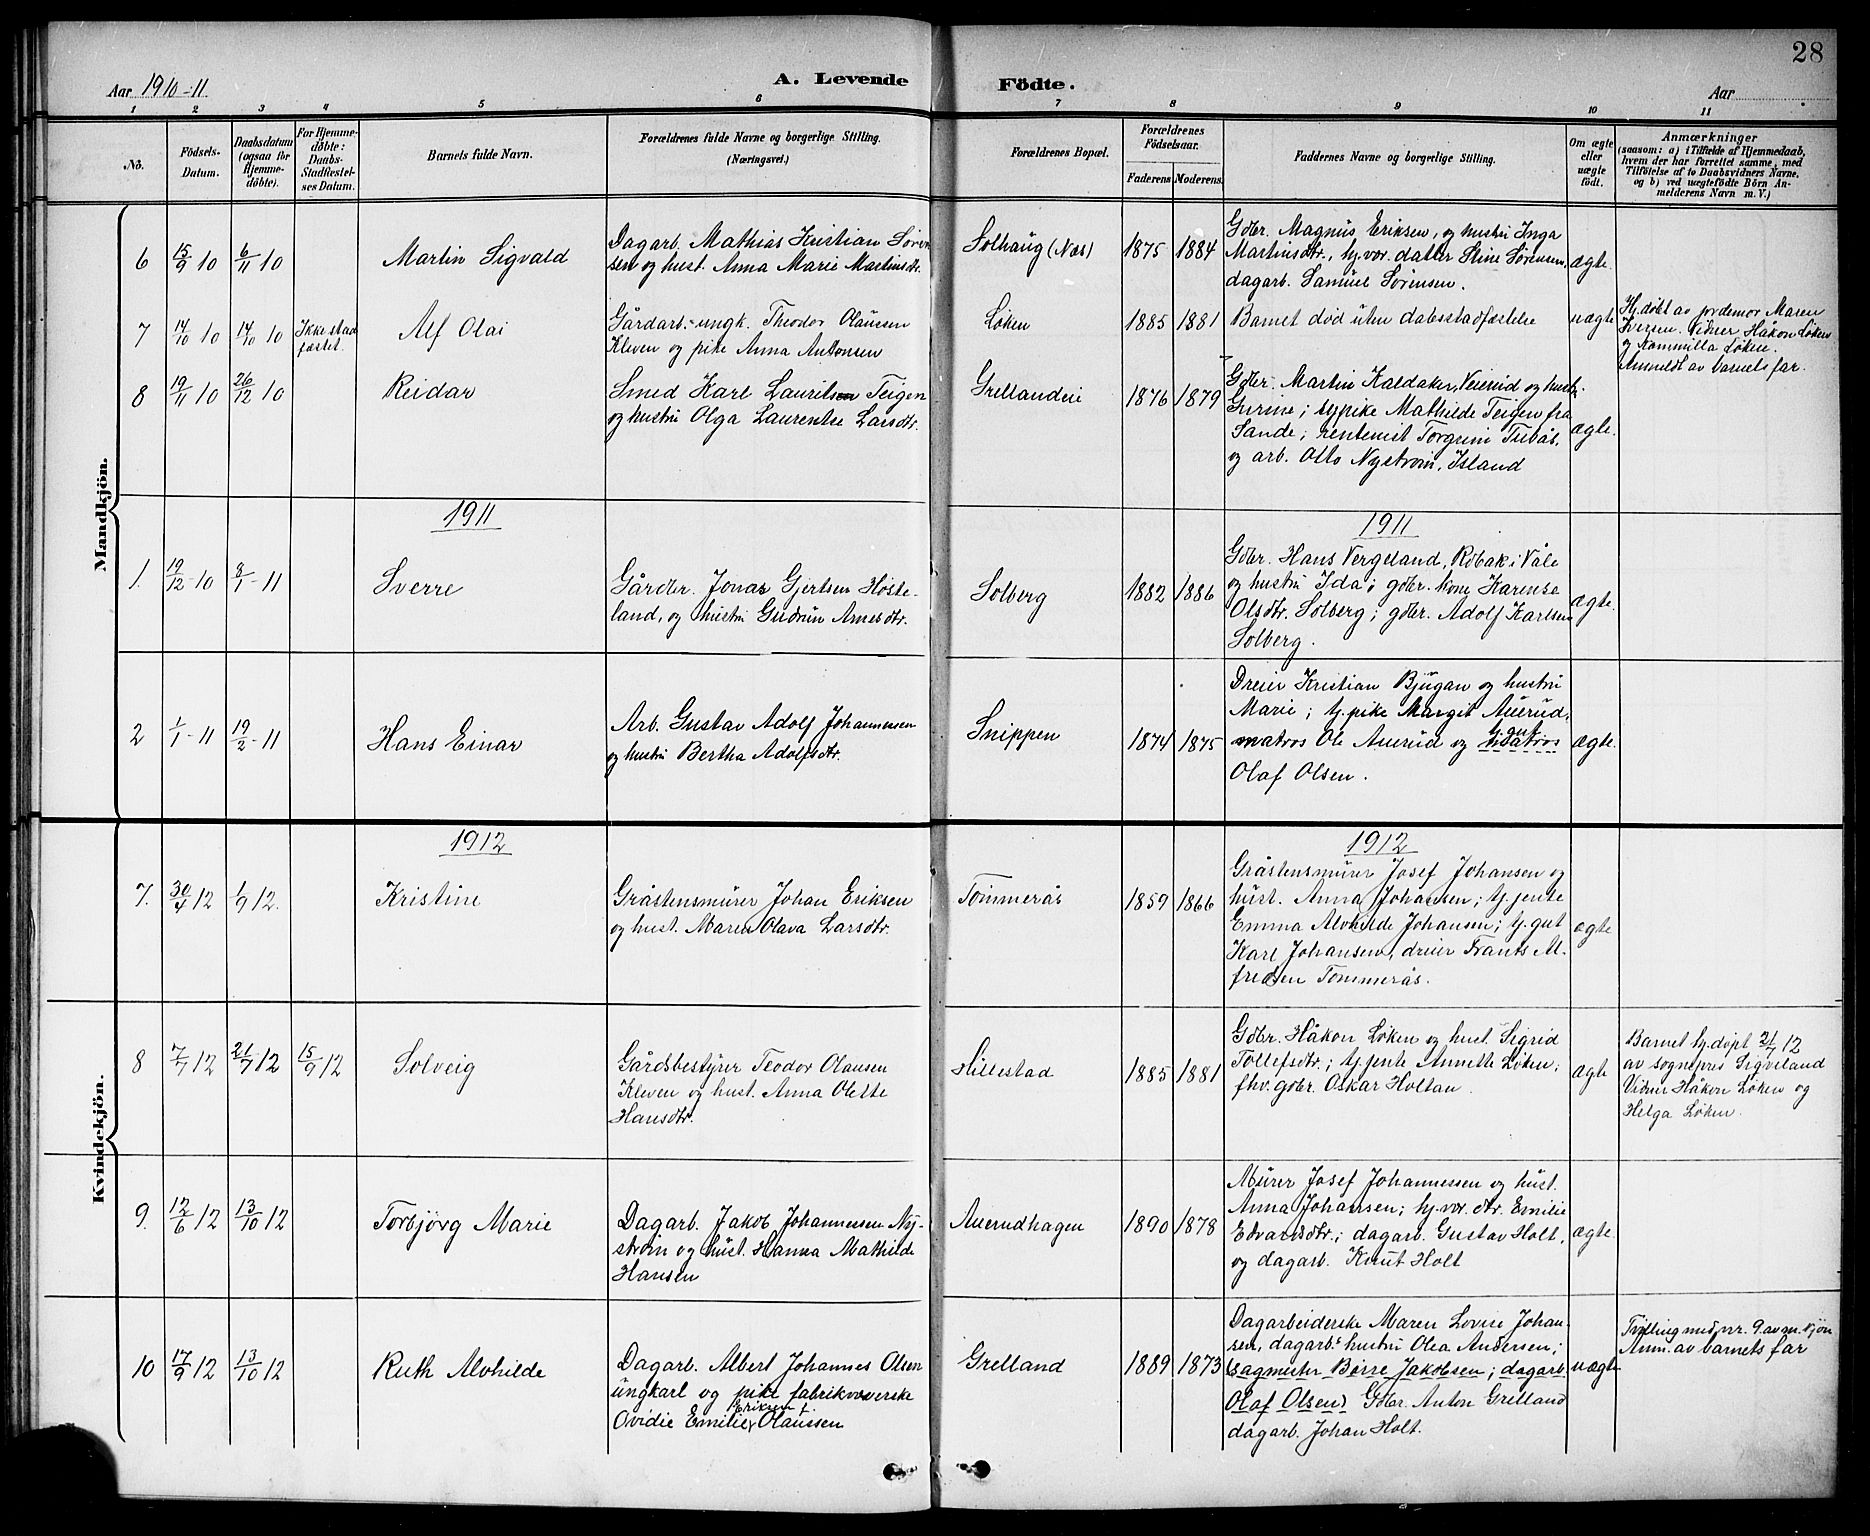 28
Aar 1910-11
A. Levende Födte.
Aar
1 2 3 4 5 6 7 8 9 10 11
No.
Födsels-
Datum.
Daabsdatum
(ogsaa for
Hjemme-
döbte).
For Hjemme-
döbte:
Daabs-
Stadfestel-
ses Datum.
Barnets fulde Navn.
Forældrenes fulde Navne og borgerlige Stilling.
(Næringsvei.)
Forældrenes Bopæl.
Forældrenes
Födselsaar.
Faderens Moderens.
Faddernes Navne og borgerlige Stilling.
Om ægte
eller
uægte
födt.
Anmærkninger
(saasom: a) i Tilfælde af Hjemmedaab,
hvem der har forrettet samme, med
Tilföielse af to Daabsvidners Navne,
og b) ved uægtefödte Börn An-
melderens Navn m. V.)
Mandkjön.
6 15/9 10 6/11 10 Martin Sigvald
Dagarb. Mathias Kristian Søren-
sen og hust. Anna Marie Martinsdtr.
Solhaug (Næs) 1875 1884
Gdbr. Magnus Eriksen, og hustru Inga
Martinsdtr., hj.vær. datter Stine Sørensen,
dagarb. Samuel Sørensen.
ægte.
7 14/10 10 14/10 10 Ikke stad
fæstet. Alf Olai
Gårdarb.-ungk. Theodor Olaussen
Kleven og pike Anna Antonsen
Løken 1885 1881
Barnet død uten dabsstadfæstelse
uægte
Hj.døbt av jordemor Maren
Iversen. Vidner Håkon Løken
og Kammilla Løken.
Anmeldt av barnets far.
8 19/11 10 26/12 10 Reidar
Smed Karl Lauritsen Teigen
og hustru Olga Laurentse Larsdtr.
Grellandeie 1876 1879
Gdbr. Martin Kaldaker, Veierud og hustr.
Gurine; tj.pike Mathilde Teigen fra
Sande; rentenist Torgrim Tubås,
og arb. Otto Nystrøm, Island
ægte.
1911 1911
1. 19/12-10 8/1-11 Sverre
Gårdbr. Jonas Gjertsen Høste-
land, og hustru Gudrun Arnesdtr.
Solberg 1882 1886
Gdbr. Hans Vergeland, Råbak i Våle
og hustru Ida; gdbr. kone Karense
Olsdtr. Solberg; gdbr. Adolf Karlsen
Solberg.
ægte.
2 1/1-11 19/2-11 Hans Einar
Arb. Gustav Adolf Johannesen
og hustru Bertha Adolfsdtr.
Snippen 1874 1875
Dreier Kristian Bjugan og hustru
Marie; tj.pike Margit Auerud,
matros Ole Auerud og matros
Olaf Olsen.
ægte.
Kvindekjön.
1912 1912
7. 30/4 12 1/9 12. Kristine
Gråstensmurer Johan Eriksen
og hust. Maren Olava Larsdtr.
Tømmerås 1859 1866
Gråstensmurer Josef Johansen og
hust. Anna Johansen; tj.jente
Emma Alvhilde Johansen; tj.gut
Karl Johansen, dreier Frants Al-
fredsen Tømmerås.
ægte
8 7/7 12 21/7 12 15/9 12 Solveig
Gårdsbestyrer Teodor Olausen
Kleven og hust. Anna Olette
Hansdtr.
Hillestad 1885 1881
Gdbr. Håkon Løken og hust. Sigrid
Tollefsdtr.; tj.jente Annette Løken;
fhv. gdbr. Oskar Holtan.
ægte
Barnet hj.døpt 21/7 12
av sognepres Sigveland
Vidner Håkon Løken og
Helga Løken.
9. 12/6 12 13/10 12 Torbjørg Marie
Dagarb. Jakob Johannessen Ny-
strøm og hust. Hanna Mathilde
Hansen
Auerudhagen 1890 1878
Murer Josef Johannessen og hust.
Anna Johansen; hj.vær. dtr. Emilie
Edvardsdtr.; dagarb. Gustav Holt,
og dagarb. Knut Holt
ægte.
10 17/9 12 13/10 12 Ruth Alvhilde
Dagarb. Albert Johannes Olsen
ungkarl og pike fabrikvæverske
Eriksen
Ovidie Emilie Olaussen
Grelland 1889 1873
Dagarbeiderske Maren Lovise Johan-
sen, dagarbs hustru Olea Andersen;
Sagmester Børre Jakobsen; dagarb.
Olaf Olsen) Gdbr. Anton Grelland
dagarb. Johan Holt.
uægte
Tvilling med nr. 9 av m. kjøn
Anm. av barnets far